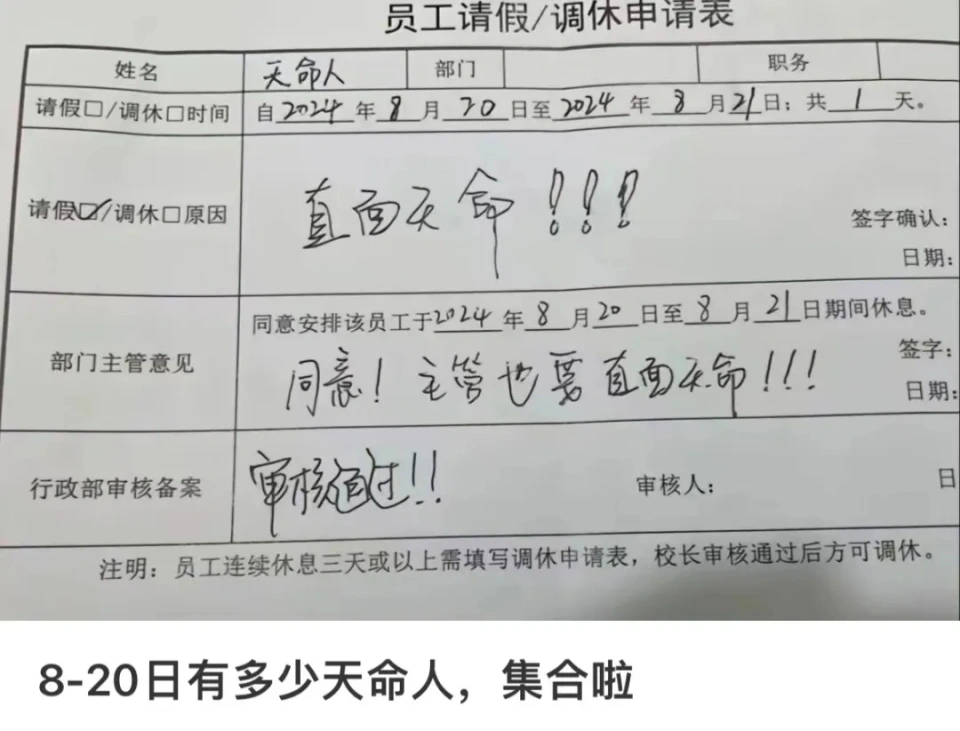 员工请假/调休申请表
姓名 天命人 部门 职务
请假□/调休□时间 自2024年8月20日至2024年8月21日；共1天。
请假☑/调休□原因 直面天命！！！
签字确认：
日期：
部门主管意见 同意安排该员工于2024年8月20日至8月21日期间休息。
同意！主管也要直面天命！！！
签字：
日期：
行政部审核备案 审核通过！！ 审核人： 日
注明：员工连续休息三天或以上需填写调休申请表，校长审核通过后方可调休。
8-20日有多少天命人，集合啦